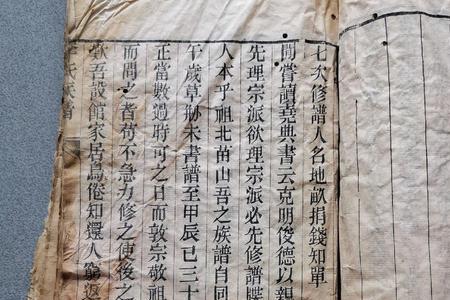 七次修譜人名地畝捐錢知單
聞嘗讀堯典書云克明俊德以親
先理宗派欲理宗派必先修譜牒
人本乎祖北苗山吾之族譜自同
午歲草刱未書譜至甲辰已三十
正當數過時可之日而敦宗敬祖
而間之者苟不急力修之使後之
歟吾設館家居鳥倦知還人窮返
氏族譜